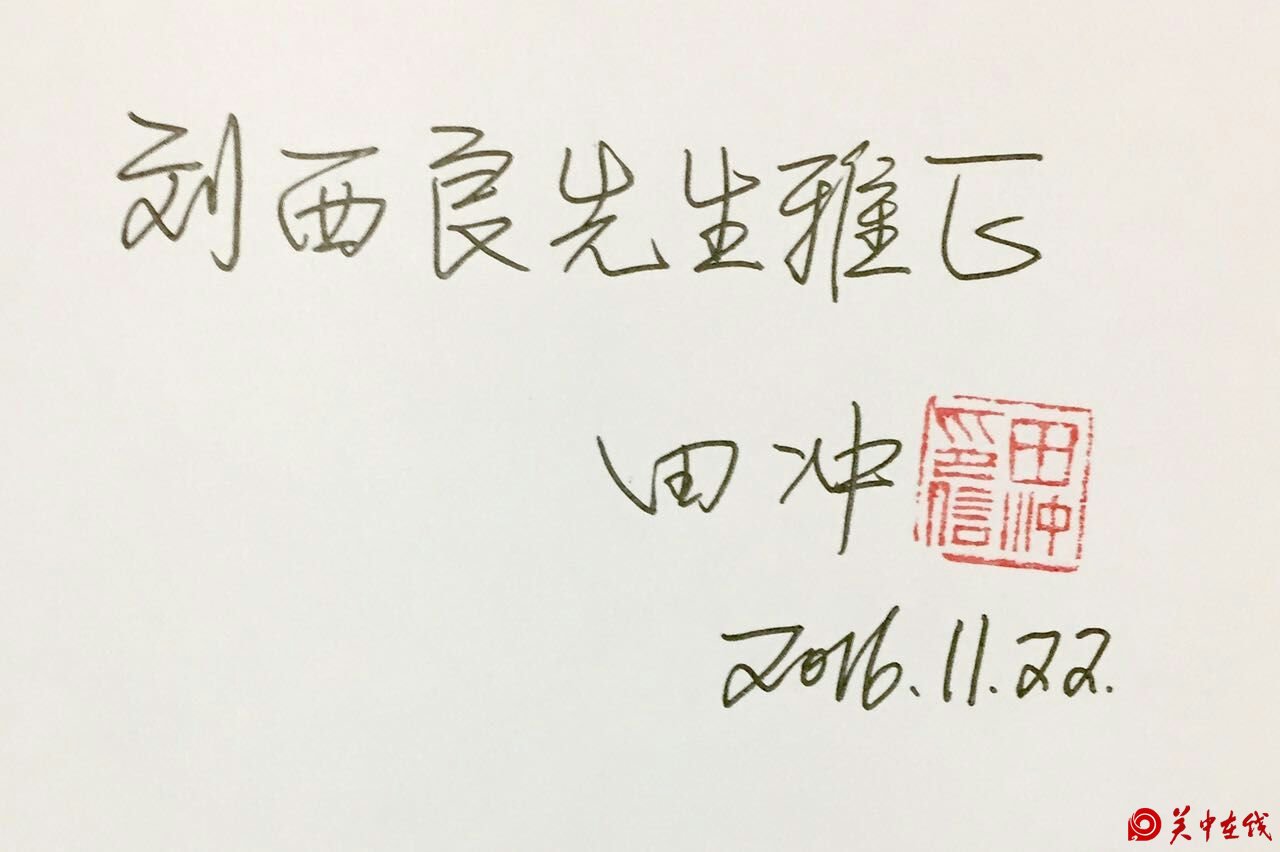 刘西良先生雅正
田冲
田冲印信
2016.11.22.
关中在线